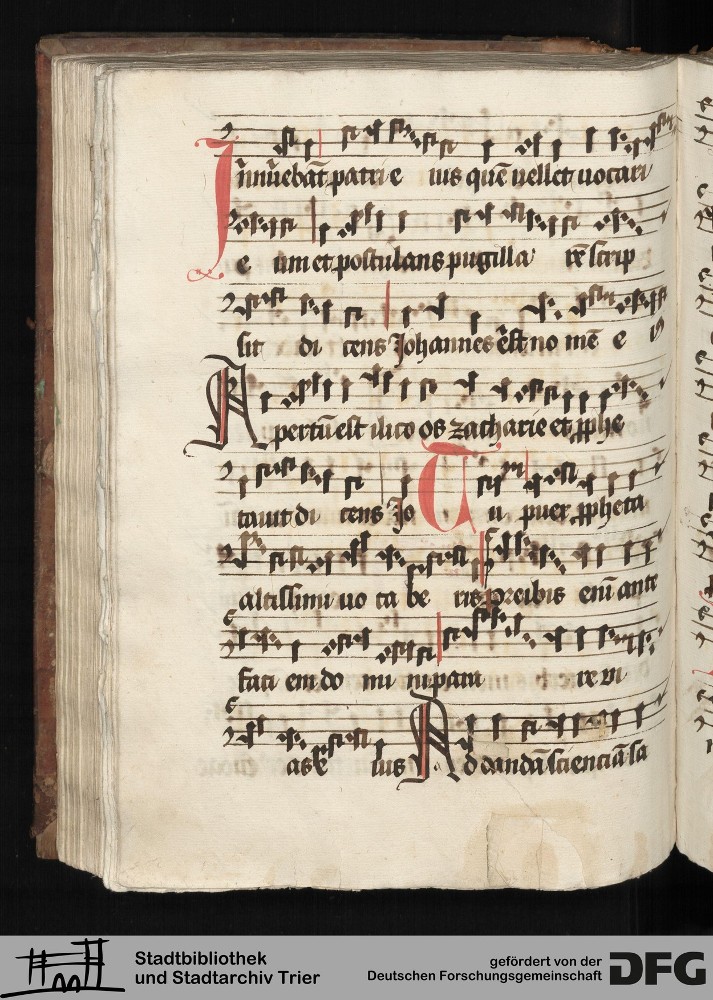 Innuebāt patri e ius quē uellet uocari
e um et postulans pugilla rē scrip
sit di cens Johannes ēst no mē e ius
Apertū est ilico os zacharie et ꝓphe
tauit di cens Jo Tu puer ꝓpheta
altissimi uo ca be ris preibis enī ante
faci em do mi ni para re vi
as e ius Ad dandā scienciā sa
Stadtbibliothek
und Stadtarchiv Trier
gefördert von der
Deutschen Forschungsgemeinschaft
DFG